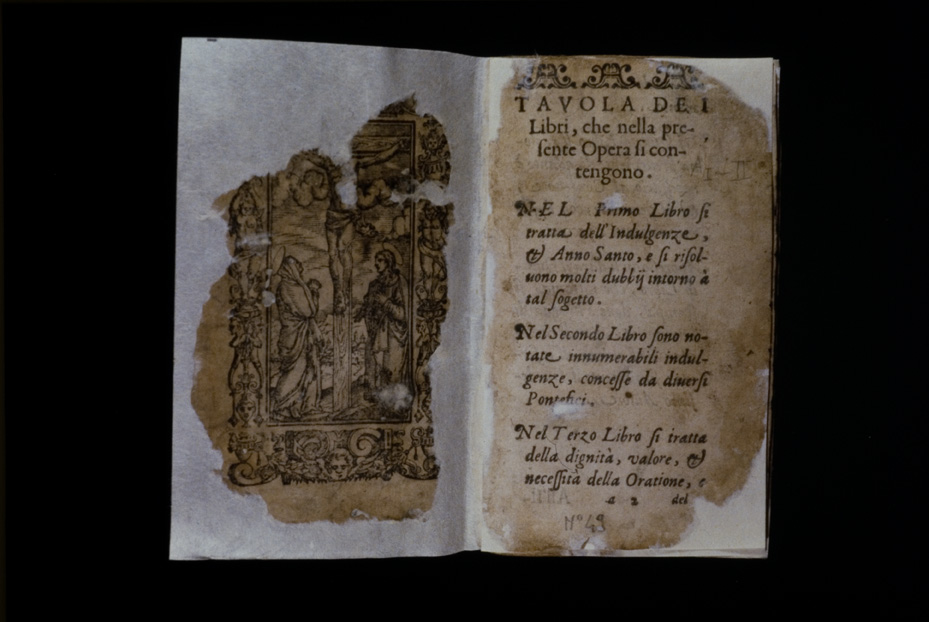 TAVOLA DEI
Libri, che nella pre-
sente Opera si con-
tengono.
NEL Primo Libro si
tratta dell'Indulgenze,
& Anno Santo, e si risol-
uono molti dubbij intorno à
tal sogetto.
Nel Secondo Libro sono no-
tate innumerabili indul-
genze, concesse da diuersi
Pontefici.
Nel Terzo Libro si tratta
della dignità, valore, &
necessità della Oratione, e
a 2 del
N° 49